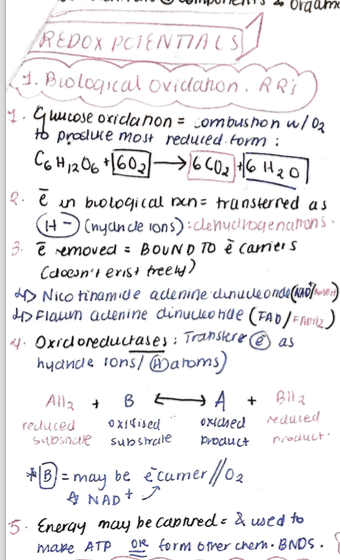 components & organ
REDOX POTENTIALS
1. Biological oxidation. RR;
1. Glucose oxidation = combustion w/ O2
to produce most reduced form :
C6H12O6 + 6O2 → 6CO2 + 6H2O
2. ē in biological rxn = transferred as
H- (hydride ions) : dehydrogenations.
3. ē removed = BOUND TO ē carriers
(doesn't exist freely)
↳ Nicotinamide adenine dinucleotide (NAD+/NADH)
↳ Flavin adenine dinucleotide (FAD/FADH2)
4. Oxidoreductases : Transfere ē as
hydride ions/ H atoms)
AH2 + B ⟷ A + BH2
reduced oxidised oxidised reduced
substrate substrate product product.
* B = may be ē carrier // O2
↳ NAD+
5. Energy may be captured = & used to
make ATP OR form other chem. BNDS.